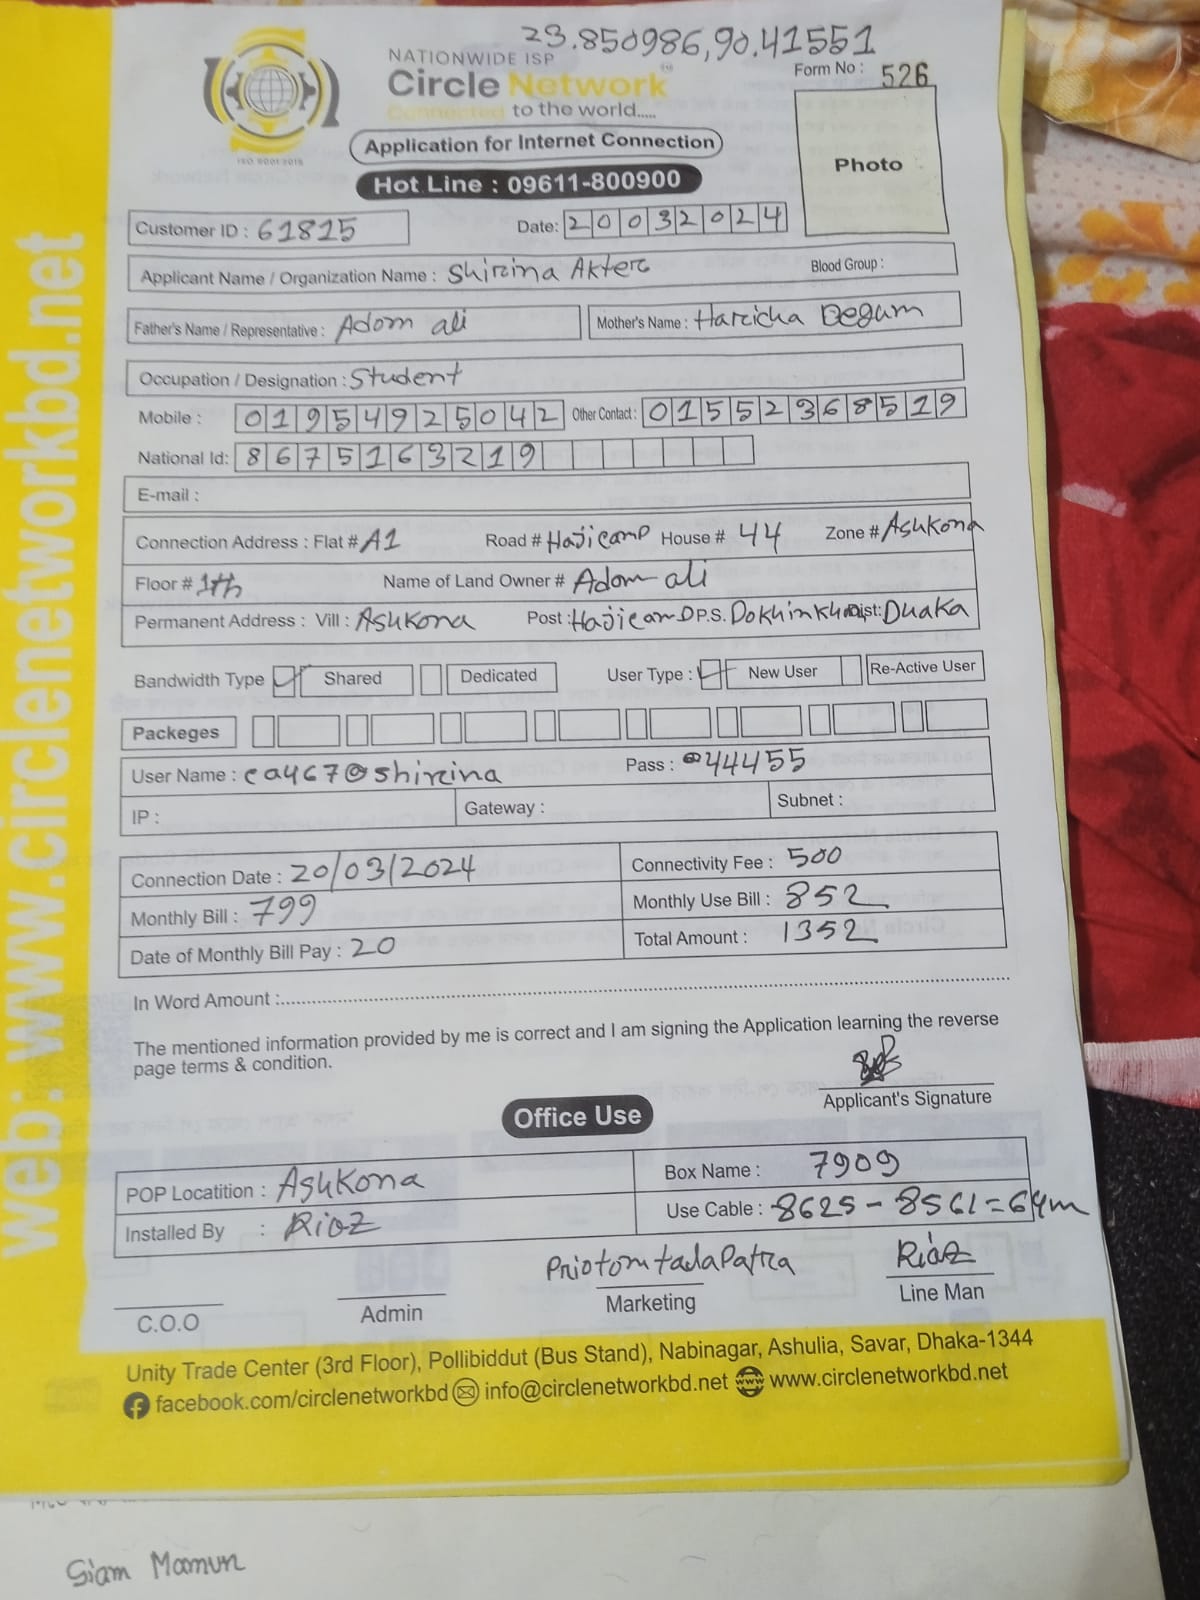 23.850986,90.41551
NATIONWIDE ISP
Circle Network
Connected to the world.....
ISO 9001:2015
Form No : 526
Application for Internet Connection
Hot Line : 09611-800900
Photo
Customer ID : 61815 Date: 20032024
Applicant Name / Organization Name : Shirina Akter Blood Group :
Father's Name / Representative : Adom ali Mother's Name : Haricha Begum
Occupation / Designation : Student
Mobile : 01954925042 Other Contact : 01552368519
National Id: 8675163219
E-mail :
Connection Address : Flat # A1 Road # Hajicamp House # 44 Zone # Ashkona
Floor # 1th Name of Land Owner # Adom ali
Permanent Address : Vill : Ashkona Post : Hajicam P.S. Dokhinkhan Dist: Dhaka
Bandwidth Type Shared Dedicated User Type : New User Re-Active User
Packeges
User Name : ca467@shirina Pass : 44455
IP : Gateway : Subnet :
Connection Date : 20/03/2024 Connectivity Fee : 500
Monthly Bill : 799 Monthly Use Bill : 852
Date of Monthly Bill Pay : 20 Total Amount : 1352
In Word Amount :
The mentioned information provided by me is correct and I am signing the Application learning the reverse
page terms & condition.
Applicant's Signature
Office Use
POP Locatition : Ashkona Box Name : 7909
Installed By : Riaz Use Cable : 8625 - 8561 = 64m
Priotom tadaPatra Riaz
C.O.O Admin Marketing Line Man
Unity Trade Center (3rd Floor), Pollibiddut (Bus Stand), Nabinagar, Ashulia, Savar, Dhaka-1344
facebook.com/circlenetworkbd info@circlenetworkbd.net www.circlenetworkbd.net
web: www.circlenetworkbd.net
Siam Mamun